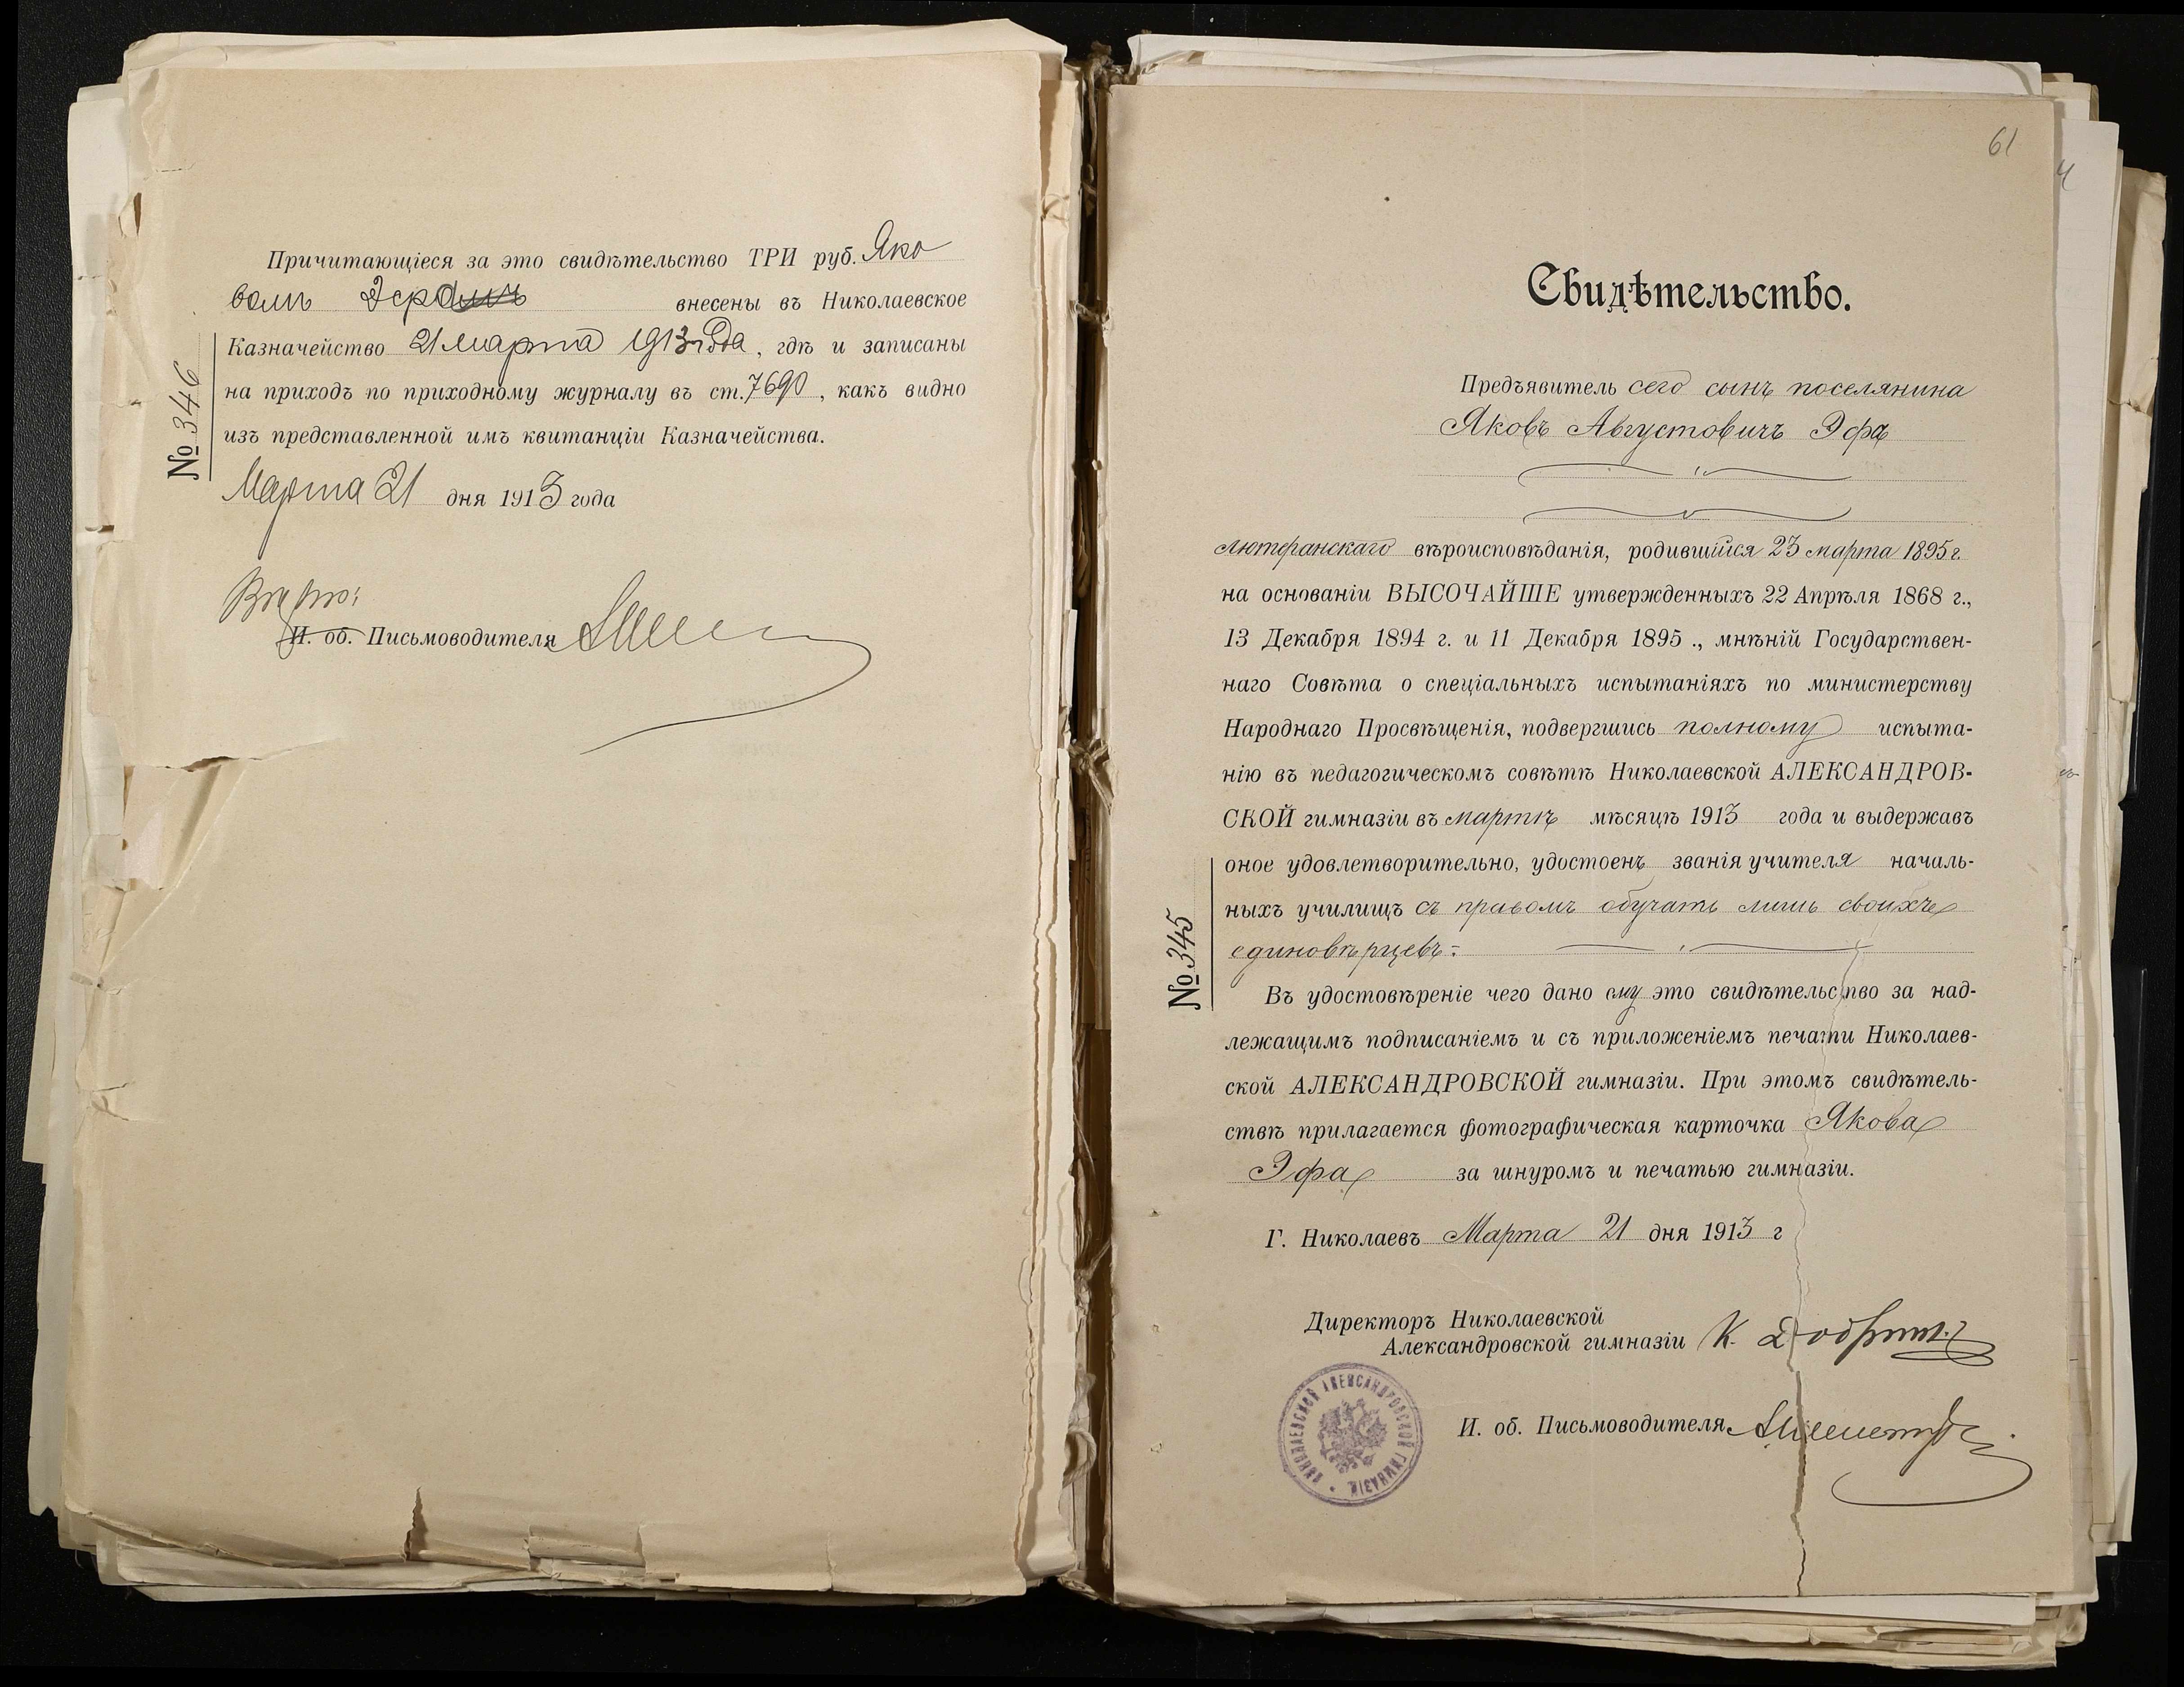 Причитающіеся за это свидѣтельство ТРИ руб. Яко
вомъ Эфомъ внесены въ Николаевское
Казначейство 21 марта 1913 года, гдѣ и записаны
на приходъ по приходному журналу въ ст. 7690, какъ видно
изъ представленной имъ квитанціи Казначейства.
№ 346
Марта 21 дня 1913 года
Вѣрно:
И. об. Письмоводителя
61
Свидѣтельство.
Предъявитель сего сынъ поселянина
Яковъ Августовичъ Эфа
лютеранскаго вѣроисповѣданія, родившійся 23 марта 1895 г.
на основаніи ВЫСОЧАЙШЕ утвержденныхъ 22 Апрѣля 1868 г.,
13 Декабря 1894 г. и 11 Декабря 1895 ., мнѣній Государствен-
наго Совѣта о спеціальныхъ испытаніяхъ по министерству
Народнаго Просвѣщенія, подвергшись полному испыта-
нію въ педагогическомъ совѣтѣ Николаевской АЛЕКСАНДРОВ-
СКОЙ гимназіи въ мартѣ мѣсяцѣ 1913 года и выдержавъ
оное удовлетворительно, удостоенъ званія учителя началь-
ныхъ училищъ съ правомъ обучать лишь своихъ
единовѣрцевъ.
№ 345
Въ удостовѣреніе чего дано ему это свидѣтельство за над-
лежащимъ подписаніемъ и съ приложеніемъ печати Николаев-
ской АЛЕКСАНДРОВСКОЙ гимназіи. При этомъ свидѣтель-
ствѣ прилагается фотографическая карточка Якова
Эфа за шнуромъ и печатью гимназіи.
Г. Николаевъ Марта 21 дня 1913 г
Директоръ Николаевской
Александровской гимназіи К.
И. об. Письмоводителя
НИКОЛАЕВСКОЙ АЛЕКСАНДРОВСКОЙ ГИМНАЗІИ